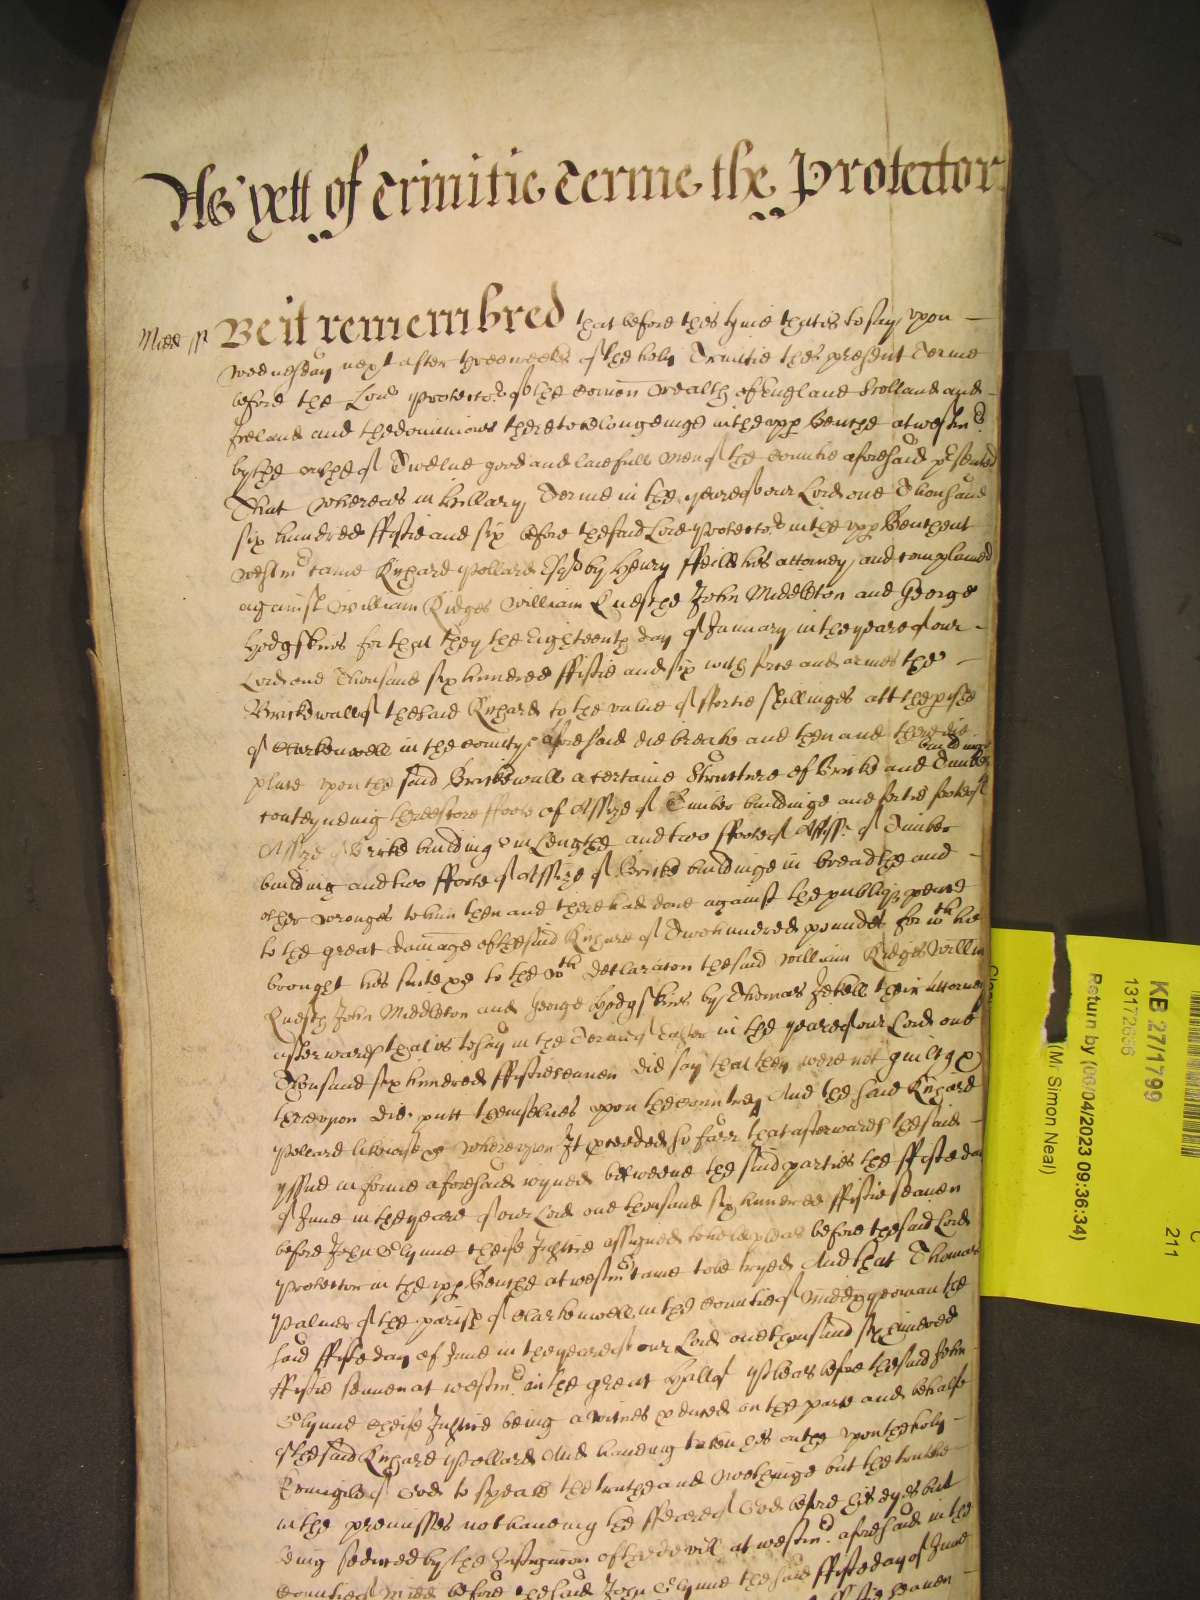 As yett of Trinitie Terme the Protector
Midd ss Be it remembred that before this tyme that is to say upon
Wednesday next after three weekes of the holy Trinitie this present Terme
before the Lord Protector of the Comon Wealth of England Scotland and
Ireland and the dominions thereto belonginge in the upp Benche at Westmr
by the oathe of Twelve good and lawfull men of the Countie aforesaid presented
That Whereas in Hillary Terme in the yeare of our Lord one Thousand
six hundred ffiftie and six before the said Lord Protector in the upp Bench at
Westmr came Richard Pollard Esqr by Henry ffeild his attorney and complained
against William Ridges William Quesche John Middleton and George
Hodgskins for that they the Eighteenth day of January in the yeare of our
Lord one Thousand six hundred ffiftie and six with force and armes the
Brickewall of the said Richard to the value of ffortie shillinges att the pishe
of Clarkenwell in the County aforesaid did breake and then and there did
place upon the said Brickewall a certaine Structure of Bricke and Timber buildinge
conteyneing threescore ffoote of Assize of Timber buildinge and fortie foote of
Assize of Bricke building in Lengthe and two ffoote of Assise of Timber
building and two ffoote of Assize of Bricke buildinge in breadthe and
other wronges to him then and there had done against the publiq peace
to the great damage of the said Richard of Two hundred poundes for wch hee
brought his suite &c to the wch declaracon the said William Ridges Willm
Quesch John Middleton and George Hodgskins by Thomas Jekell their Attorney
afterwards that is to say in the Terme of Easter in the yeare of our Lord one
Thousand six hundred ffiftie seaven did say that they were not guilty &c
thereupon did putt themselves upon the country And the said Richard
Pollard likewise &c whereupon It proceded so farr that afterwards the said
yssue in forme aforesaid ioyned betweene the said parties the ffifte day
of June in the yeare of our Lord one thousand six hundred ffiftie seaven
before John Glynne cheife Justice assigned to hold pleas before the said Lord
Protector in the upp Benche at Westmr came to be tryed And that Thomas
Palmer of the parish of Clarkenwell in the Countie of Midd yeoman the
said ffifte day of June in the yeare of our Lord one thousand six hundred
ffiftie seaven at Westmr in the great Hall of Pleas before the said John
Glynne Cheife Justice being a witnes pduced on the parte and behalfe
of the said Richard Pollard And haveing taken his oathe upon the holy
Evangiles of God to speake the truthe and nothinge but the truthe
in the premisses not haveing the ffeare of God before his eyes but
being seduced by the Instigacon of the devill at Westmr aforesaid in the
Countie of Midd before the said John Glynne the said ffifte day of June
ffiftie seaven
KB 27/1799
13172636
Return by (06/04/2023 09:36:34)
(Mr Simon Neal)
211